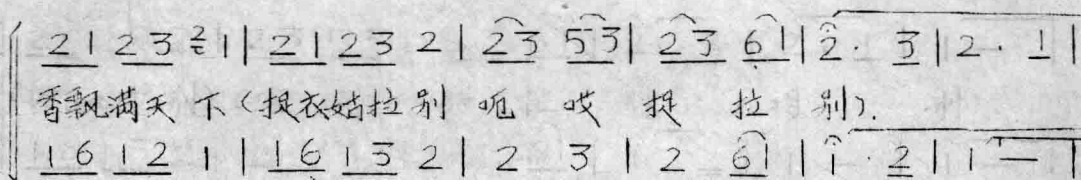 21 23 ²1 | 21 23 2 | 23 53 | 23 61 | 2· 3 | 2· 1 |
香飘满天下(捉衣姑拉别 呃 哎 捉 拉 别).
16 12 1 | 16 13 2 | 2 3 | 2 61 | 1· 2 | 1 — |